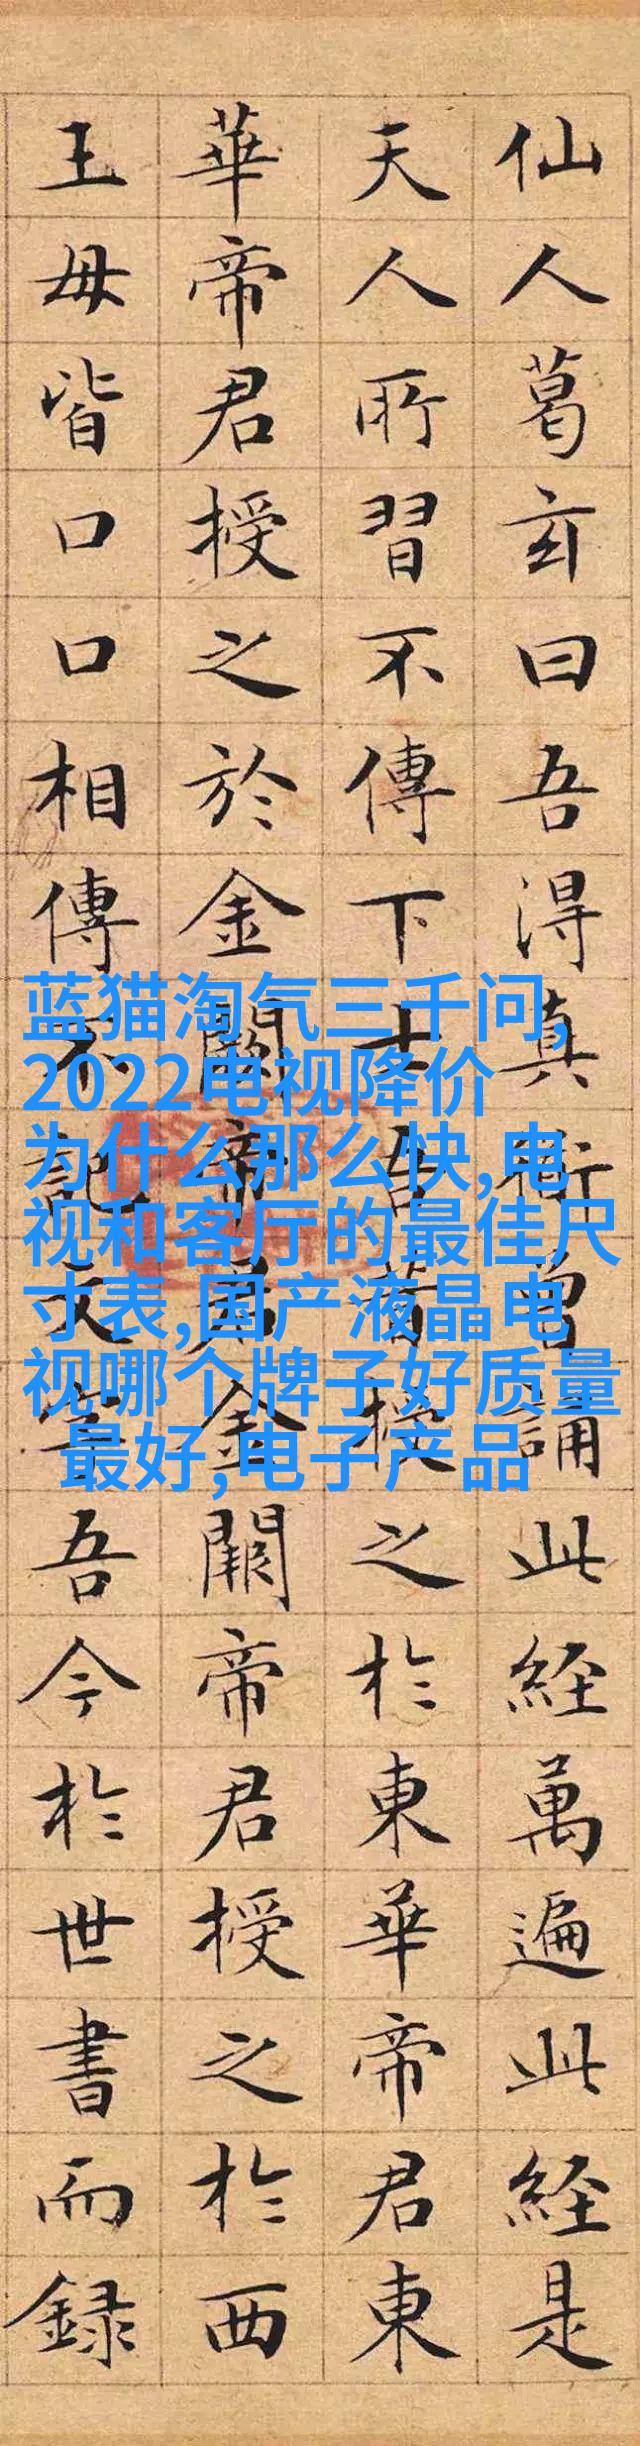 仙人葛玄曰吾淂真衜曾誦此經萬遍此經是
天人所習不傳下士吾昔授之於東華帝君東
華帝君授之於金闕帝君金闕帝君授之於西
王母皆口口相傳不記文字吾今於世書而録
蓝猫淘气三千问,
2022电视降价
为什么那么快,电
视和客厅的最佳尺
寸表,国产液晶电
视哪个牌子好质量
最好,电子产品